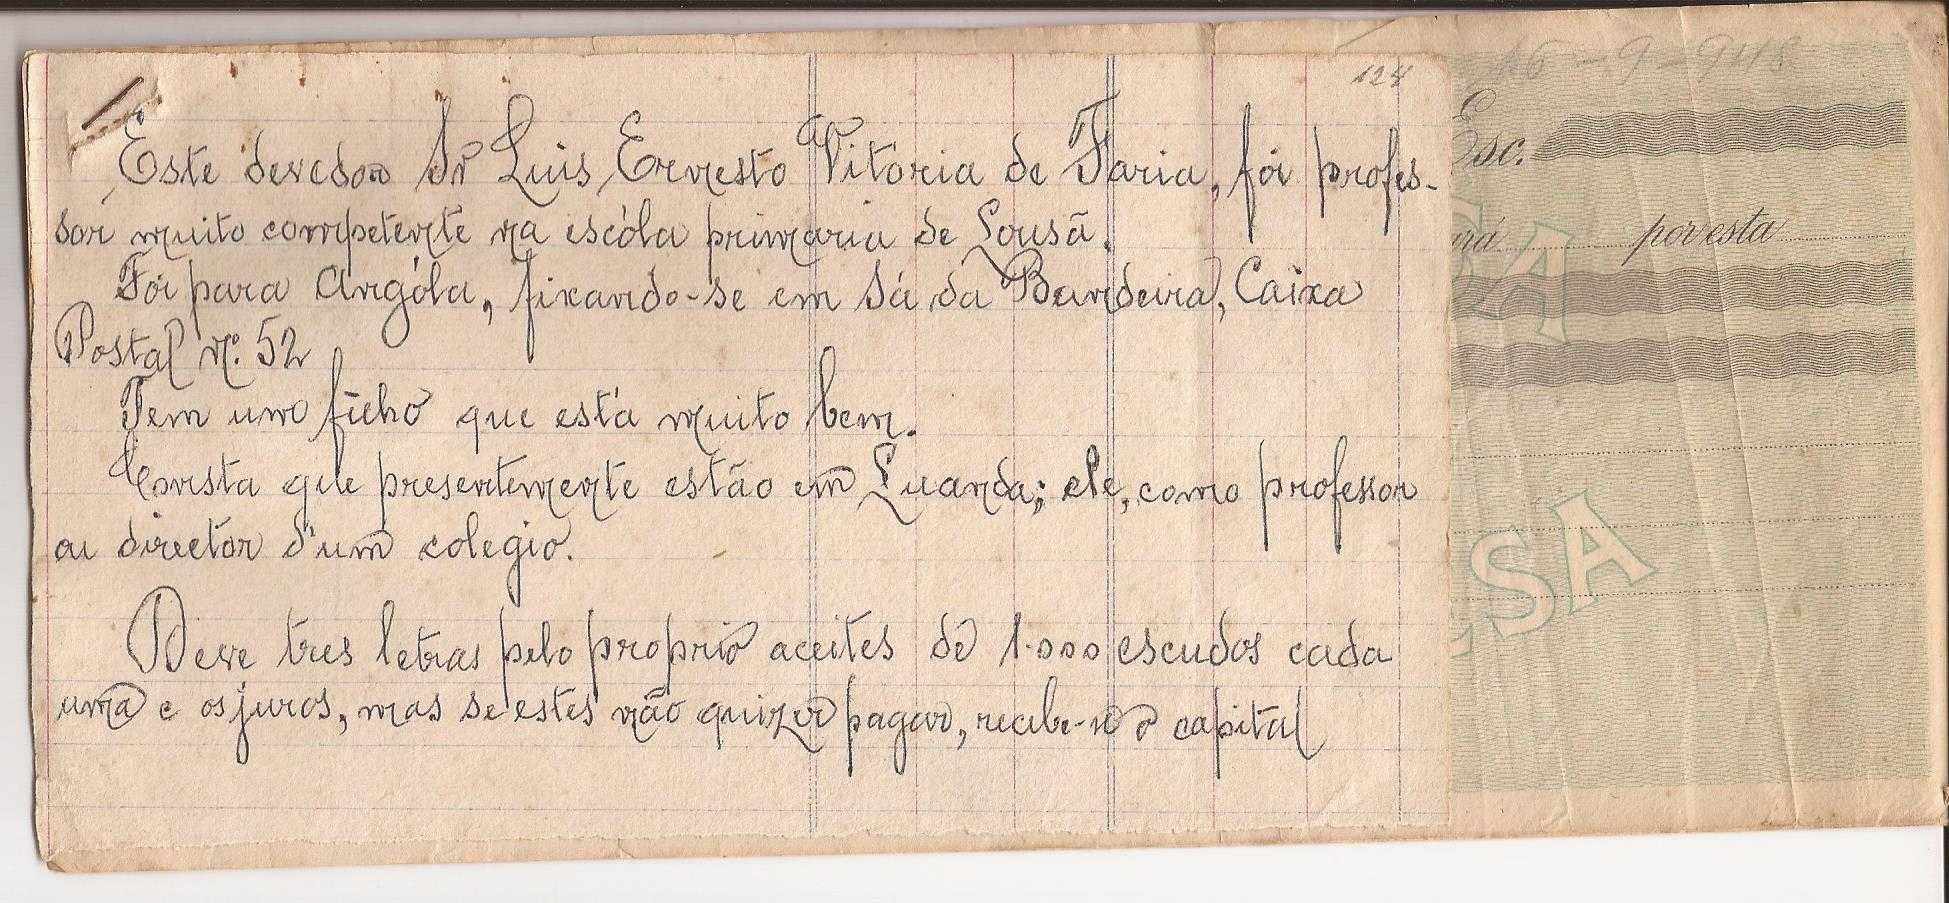 124
16-9-948
Este devedor Sr Luis Ernesto Vitória de Faria, foi profes-
sor muito competente na escóla primaria de Lousã.
Foi para Angóla, fixando-se em Sá da Bandeira, Caixa
Postal nº. 52
Tem um filho que está muito bem.
Consta que presentemente estão em Luanda; ele, como professor
ou director d'um colegio.
Deve tres letras pelo proprio aceites de 1.000 escudos cada
uma e os juros, mas se estes não quizer pagar, recebe-se o capital
Esc.
por esta